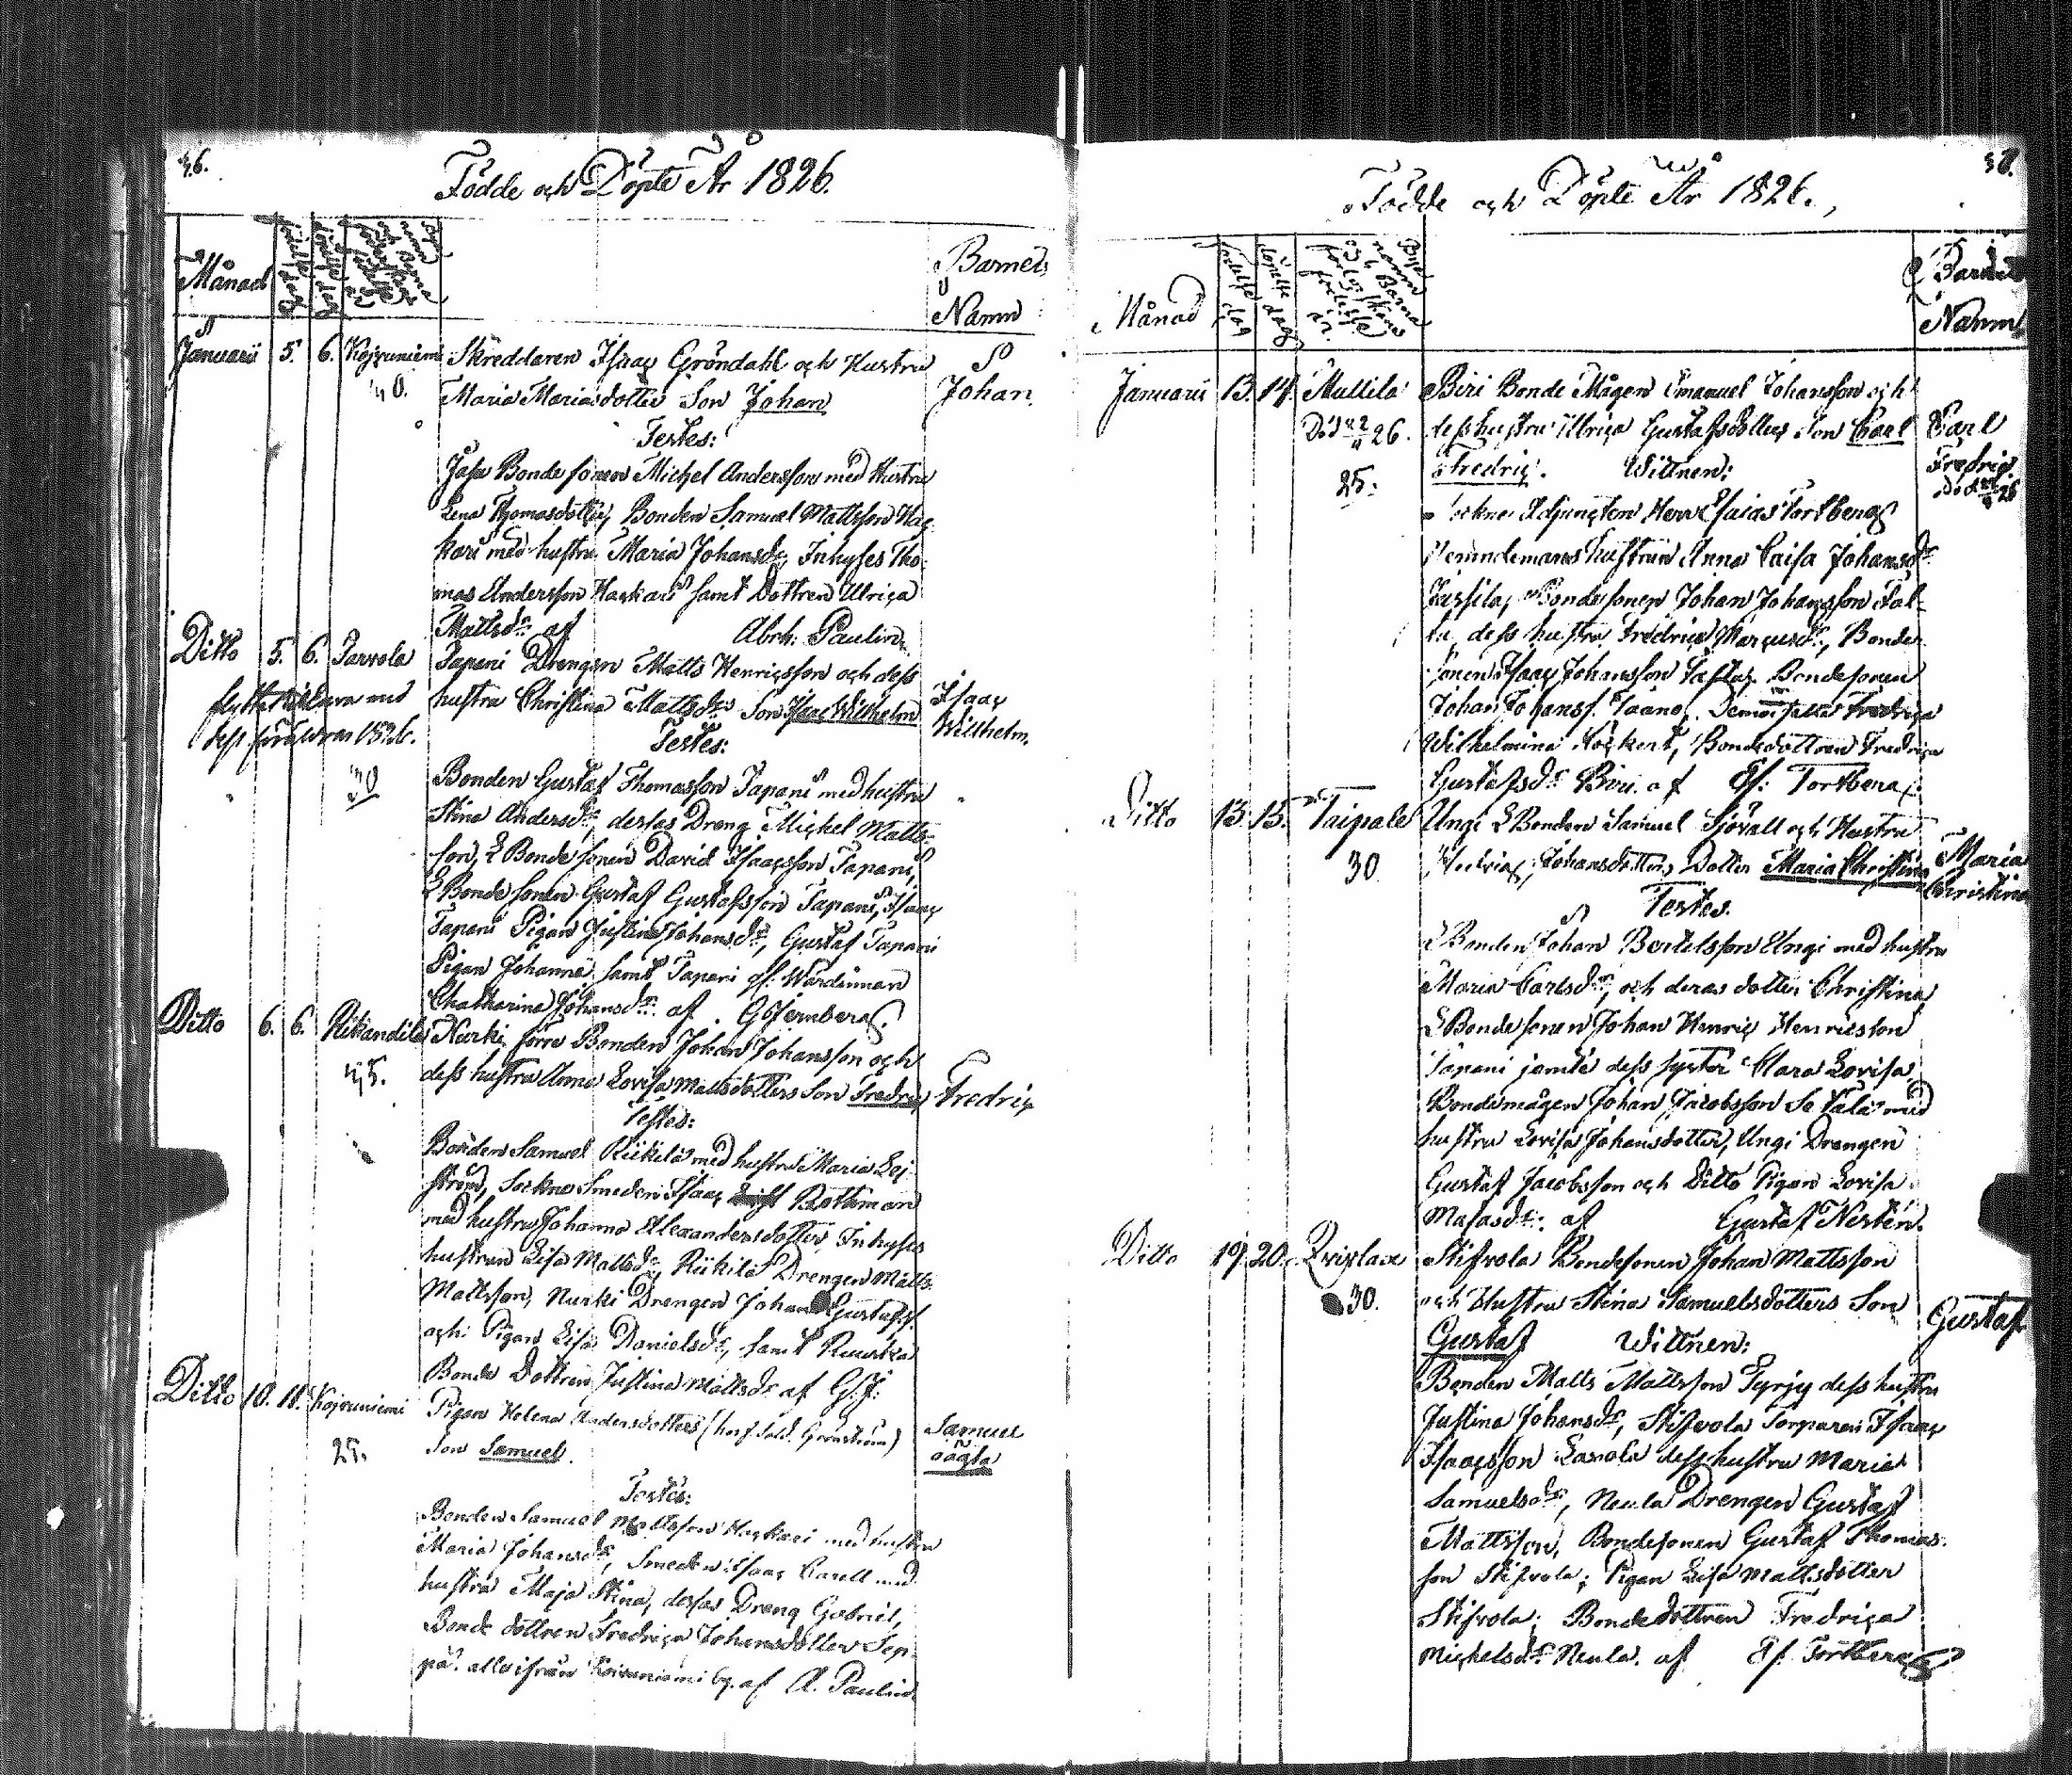 Födde och Döpte År 1826.
Månad
Barnets
Namn
Januarii 5. 6. Kojvuniemi Skreddaren Isaac Gröndahl och Hustru
40. Maria Mariædotter Son Johan Johan
Testes:
Bonde sonen Michel Andersson med Hustru
Lena Thomasdotter, Bonden Samuel Mattsson Hac
kari med hustru Maria Johansdr, Inhyses Tho
mas Andersson Hackari samt Dottren Ulrica
Mattsdr af Abrh. Paulin.
Ditto 5. 6. Jarvola Tapani Drengen Matts Henricsson och dess
hustru Christina Mattsdr Son Isaac Wilhelm Isaac
Wilhelm.
dess föräldrar 1826.
Testes:
30
Bonden Gustaf Thomasson Tapani med hustru
Stina Andersdr, derfas Dreng Michel Matts
son, Bonde sonen David Isaacsson Tapani,
Bonde sonen Gustaf Gustafsson Tapani, Isaac
Tapani Pigan Justina Johansdr, Gustaf Tapani
Pigan Johanna samt Tapani gf. Wärdinnan
Chatharina Johansdr af G Jernberg.
Ditto 6. 6. Rikandila Nurki förre Bonden Johan Johansson och
45. dess hustru Anna Lovisa Mattsdotters Son Fredric Fredric
Testes:
Bonden Samuel Riikilä med hustru Maria Lej
ström, Sockne Smeden Isaac Rothman
med hustru Johanna Alexandersdotter, Inhyses
hustrun Lisa Mattsdr, Riikilä Drengen Matts
Mattsson, Nurki Drengen Johan Gustafss.
och Pigan Lisa Danielsdr, samt
Bonde Dottren Justina Mattsdr af G.J:
Ditto 10. 11. Kojvuniemi Pigan Helena Andersdotters (horf. Sold. Grönström) Samuel
25. Son Samuel. oägta
Testes:
Bonden Samuel Mattsson Hackari med hustru
Maria Johansdr, Smeden Isaac Carell med
hustru Maja Stina, derfas Dreng Gabriel,
Bonde dottren Fredrica Johansdotter Sep
pä. alle ifrån Koivuniemi by. af A. Paulin.
Födde och Döpte År 1826.
Månad
Födelse dag
Döpelse dag
Barnets
Namn
Januarii 13. 14. Mullila Biri Bonde Mågen Emanuel Johansson och
Död 26. dess hustru Ulrica Gustafsdotters Son Carl Carl
25. Fredric. Wittnen: Fredric
Sockne Adjuncten Herr Esaias Tortberg
Nemndemans hustrun Anna Caisa Johansdr
Jussila, Bondesonen Johan Johansson Tal-
la, dess hustru Fredrica Marcusdr, Bonde
sonen Isaac Johansson Bondesonen
Johan Johanss. Jaano, Demoiselle Fredrica
Wilhelmina Höckert, Bondedottren Fredrica
Gustafsdr Biri. af Es: Tortberg.
Ditto 13. 15. Taipale Ungi Bonden Samuel Sjövall och Hustru
30 Johansdotters Dotter Maria Christina Maria
Christina
Testes.
Bonden Johan Bertelsson Ungi med hustru
Maria Carlsdr, och deras dotter Christina
Bonde sonen Johan Henric Henricsson
Tapani jemte dess syster Clara Lovisa,
Bondemågen Johan Jacobsson med
hustru Lovisa Johansdotter, Ungi Drengen
Gustaf Jacobsson och Ditto Pigan Lovisa
af Gustaf Nestén.
Ditto 19. 20. Stifvola Bondesonen Johan Mattsson
30. och Hustru Stina Samuelsdotters Son
Gustaf Wittnen: Gustaf
Bonden Matts Mattsson Pyrjy dess hustru
Justina Johansdr, Stifvola Torparen Isaac
Isaacsson dess hustru Maria
Samuelsdr, Neula Drengen Gustaf
Mattsson, Bondesonen Gustaf Thomas
son Stifvola; Pigan Lisa Mattsdotter
Stifvola; Bondedottren Fredrica
Michelsdr Neula. af Es. Tortberg